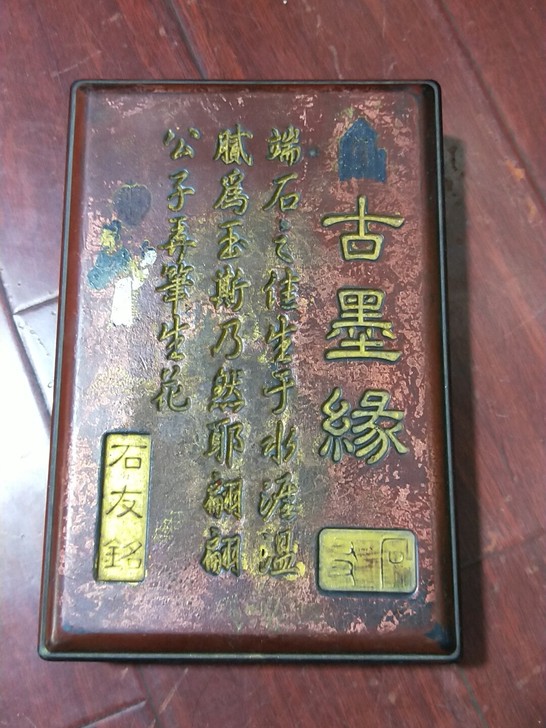 古墨緣
端石之佳生于水涯溫
膩爲玉斯乃然耶翩翩
公子弄筆生花
石友銘